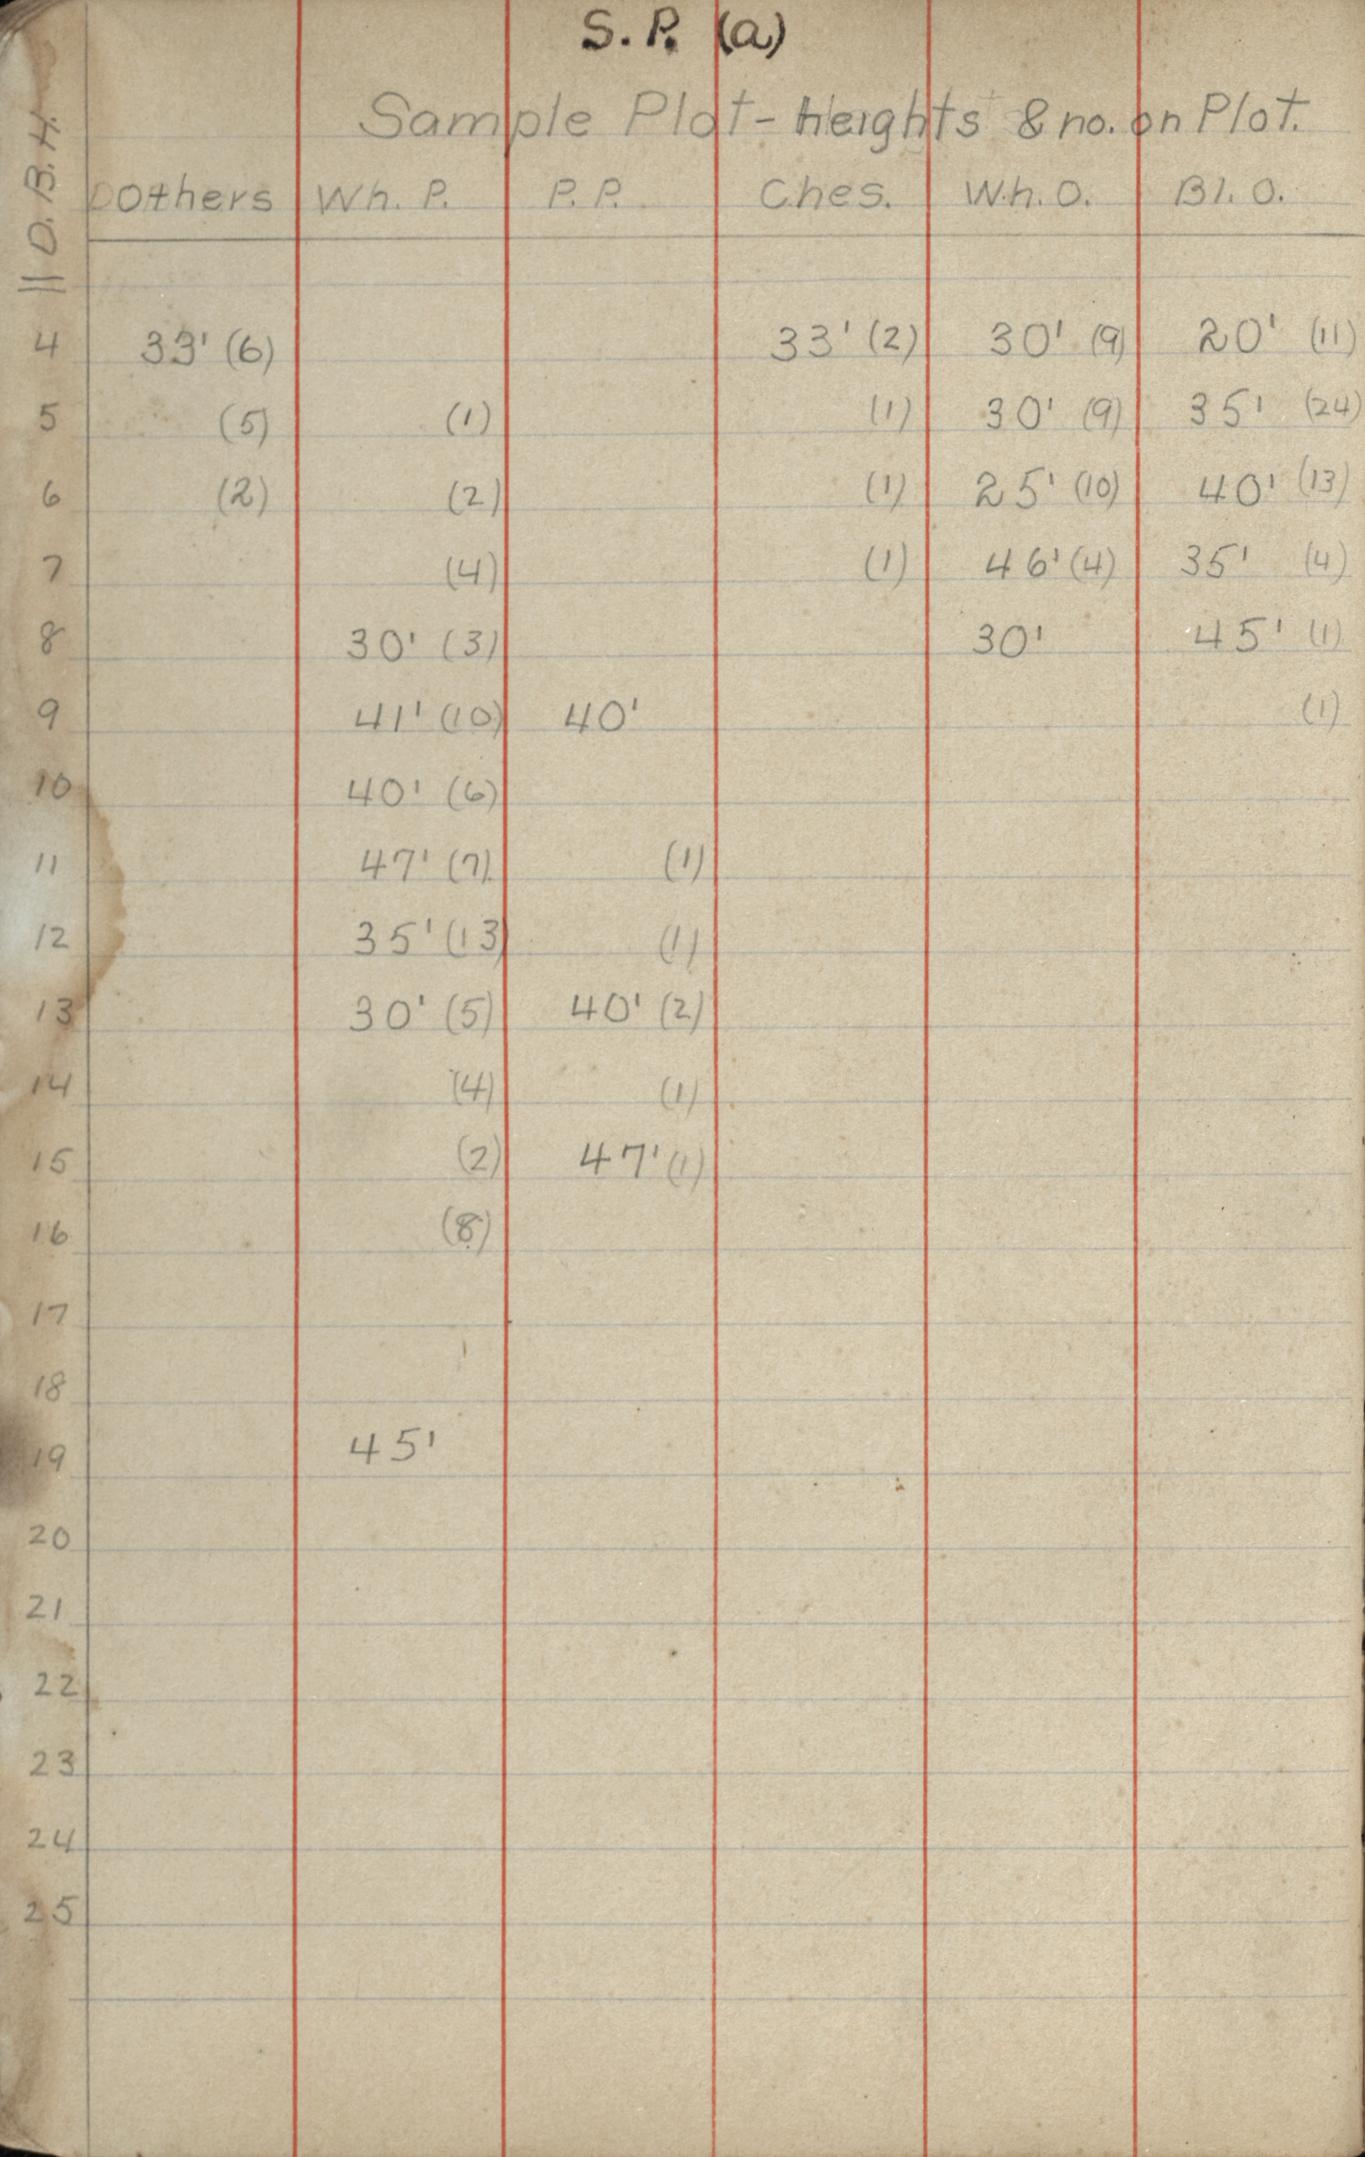 S.P. (a)
Sample Plot - Heights & no. on Plot.
D.B.H. Others Wh. P. P.P. Ches. Wh. O. Bl. O.
4 33' (6) 33' (2) 30' (9) 20' (11)
5 (5) (1) (1) 30' (9) 35' (24)
6 (2) (2) (1) 25' (10) 40' (13)
7 (4) (1) 46' (4) 35' (4)
8 30' (3) 30' 45' (1)
9 41' (10) 40' (1)
10 40' (6)
11 47' (7) (1)
12 35' (13) (1)
13 30' (5) 40' (2)
14 (4) (1)
15 (2) 47' (1)
16 (8)
17
18
19 45'
20
21
22
23
24
25